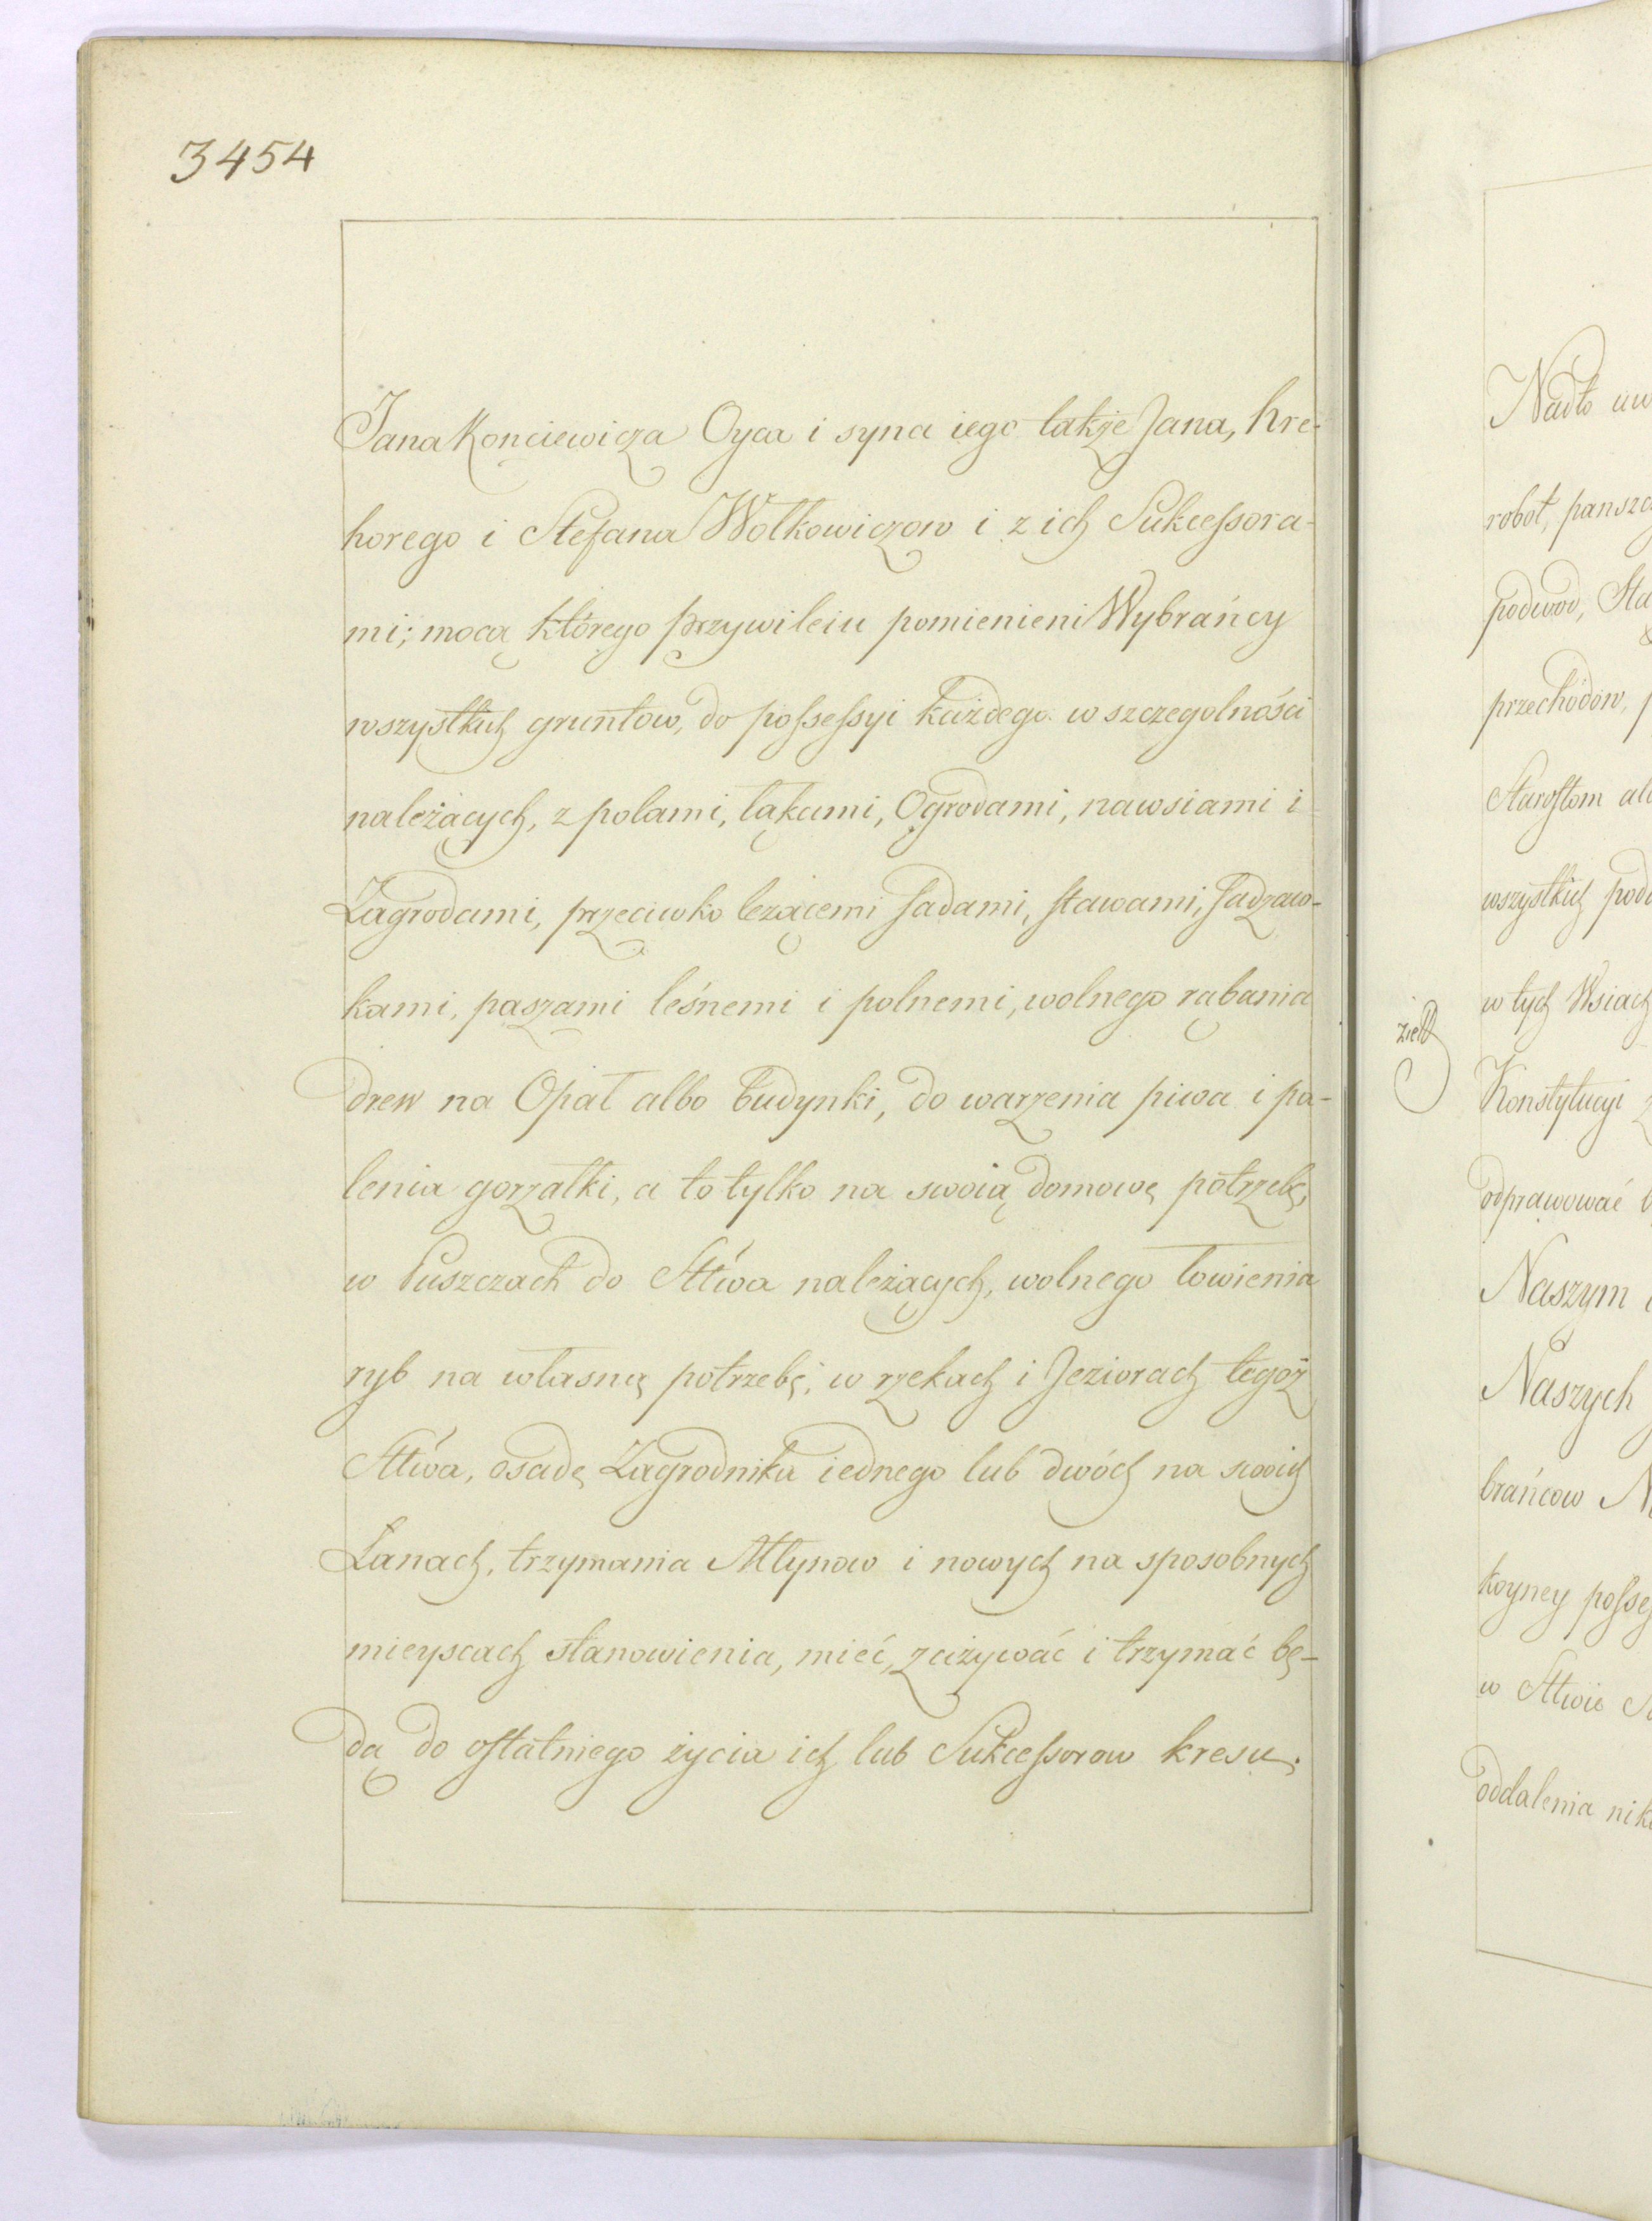 3454
Jana Konciewicza Oyca i syna iego także Jana, hre-
horego i Stefana Wołkowiczow i z ich Sukcessora-
mi; mocą którego przywileiu pomienieni Wybrańcy
wszystkich gruntow, do possessyi każdego w szczegolności
należących, z polami, łąkami, Ogrodami, nawsiami i
Zagrodami, przeciwko leżącemi sadami, stawami, sadzaw-
kami, paszami leśnemi i polnemi, wolnego rąbania
drew na Opał albo budynki, do warzenia piwa i pa-
lenia gorzałki, a to tylko na swoią domowę potrzebę,
w Puszczach do Sttwa należących, wolnego łowienia
ryb na własnę potrzebę, w rzekach i Jeziorach tegoż
Sttwa, osadę Zagrodnika iednego lub dwóch na swoich
Łanach, trzymania Młynow i nowych na sposobnych
mieyscach stanowienia, mieć, zażywać i trzymać bę-
dą do ostatniego życia ich lub Sukcessorow kresu.
Nadto
robot,
podwod,
przechodow,
Starostom
wszystkich
w tych Wsiach
Konstytucyi
odprawować
Naszym
Naszych
brańcow
koyney
w Sttwie
oddalenia